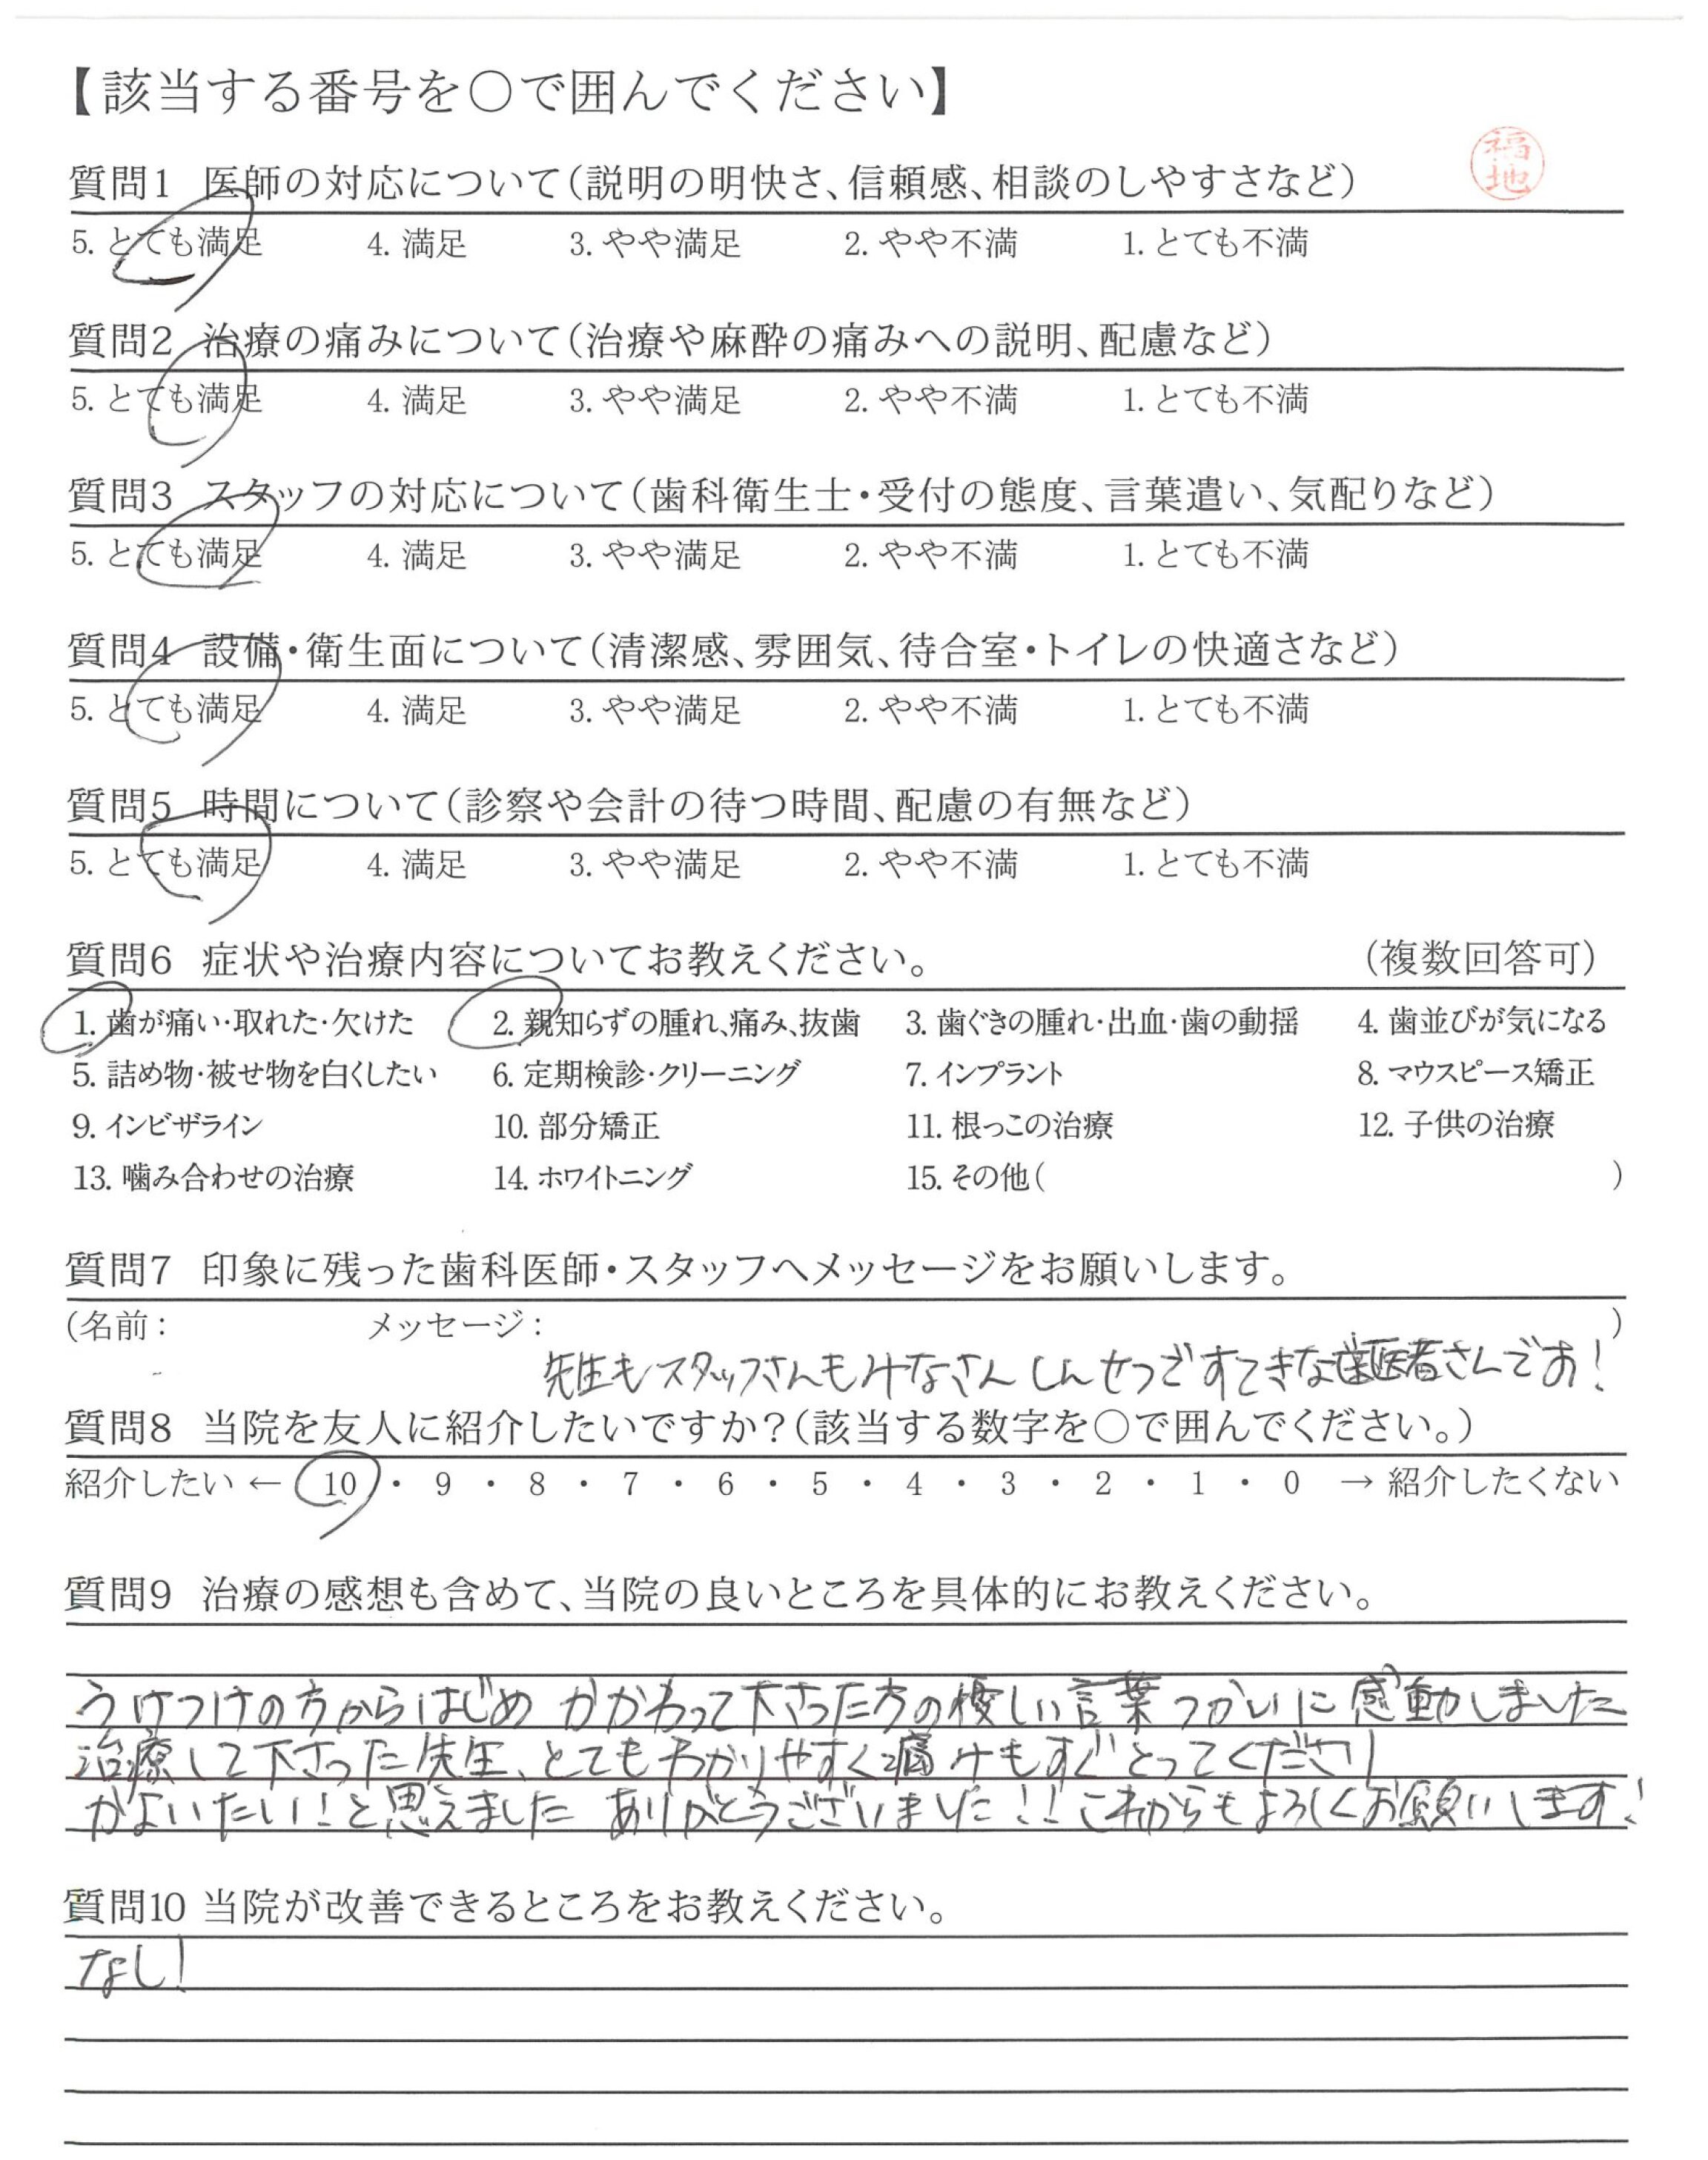 【該当する番号を○で囲んでください】
福地
質問1 医師の対応について(説明の明快さ、信頼感、相談のしやすさなど)
5. とても満足 4. 満足 3. やや満足 2. やや不満 1. とても不満
質問2 治療の痛みについて(治療や麻酔の痛みへの説明、配慮など)
5. とても満足 4. 満足 3. やや満足 2. やや不満 1. とても不満
質問3 スタッフの対応について(歯科衛生士・受付の態度、言葉遣い、気配りなど)
5. とても満足 4. 満足 3. やや満足 2. やや不満 1. とても不満
質問4 設備・衛生面について(清潔感、雰囲気、待合室・トイレの快適さなど)
5. とても満足 4. 満足 3. やや満足 2. やや不満 1. とても不満
質問5 時間について(診察や会計の待つ時間、配慮の有無など)
5. とても満足 4. 満足 3. やや満足 2. やや不満 1. とても不満
質問6 症状や治療内容についてお教えください。 (複数回答可)
1. 歯が痛い・取れた・欠けた 2. 親知らずの腫れ、痛み、抜歯 3. 歯ぐきの腫れ・出血・歯の動揺 4. 歯並びが気になる
5. 詰め物・被せ物を白くしたい 6. 定期検診・クリーニング 7. インプラント 8. マウスピース矯正
9. インビザライン 10. 部分矯正 11. 根っこの治療 12. 子供の治療
13. 噛み合わせの治療 14. ホワイトニング 15. その他( )
質問7 印象に残った歯科医師・スタッフへメッセージをお願いします。
(名前: メッセージ: )
先生もスタッフさんもみなさんしんせつですてきな歯医者さんです!
質問8 当院を友人に紹介したいですか?(該当する数字を○で囲んでください。)
紹介したい ← 10 ・ 9 ・ 8 ・ 7 ・ 6 ・ 5 ・ 4 ・ 3 ・ 2 ・ 1 ・ 0 → 紹介したくない
質問9 治療の感想も含めて、当院の良いところを具体的にお教えください。
うけつけの方からはじめ かかわって下さった方の優しい言葉つかいに感動しました
治療して下さった先生、とてもわかりやすく痛みもすぐとってくださり
かよいたい!と思えました ありがとうございました!!これからもよろしくお願いします!
質問10 当院が改善できるところをお教えください。
なし!